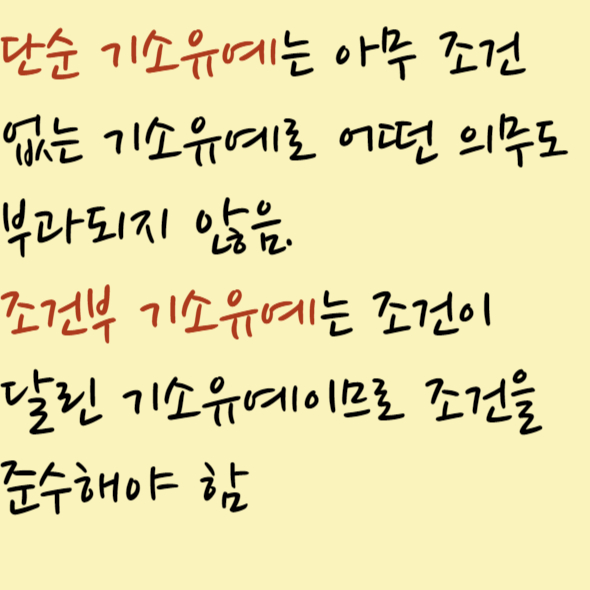 단순 기소유예는 아무 조건
없는 기소유예로 어떤 의무도
부과되지 않음.
조건부 기소유예는 조건이
달린 기소유예이므로 조건을
준수해야 함